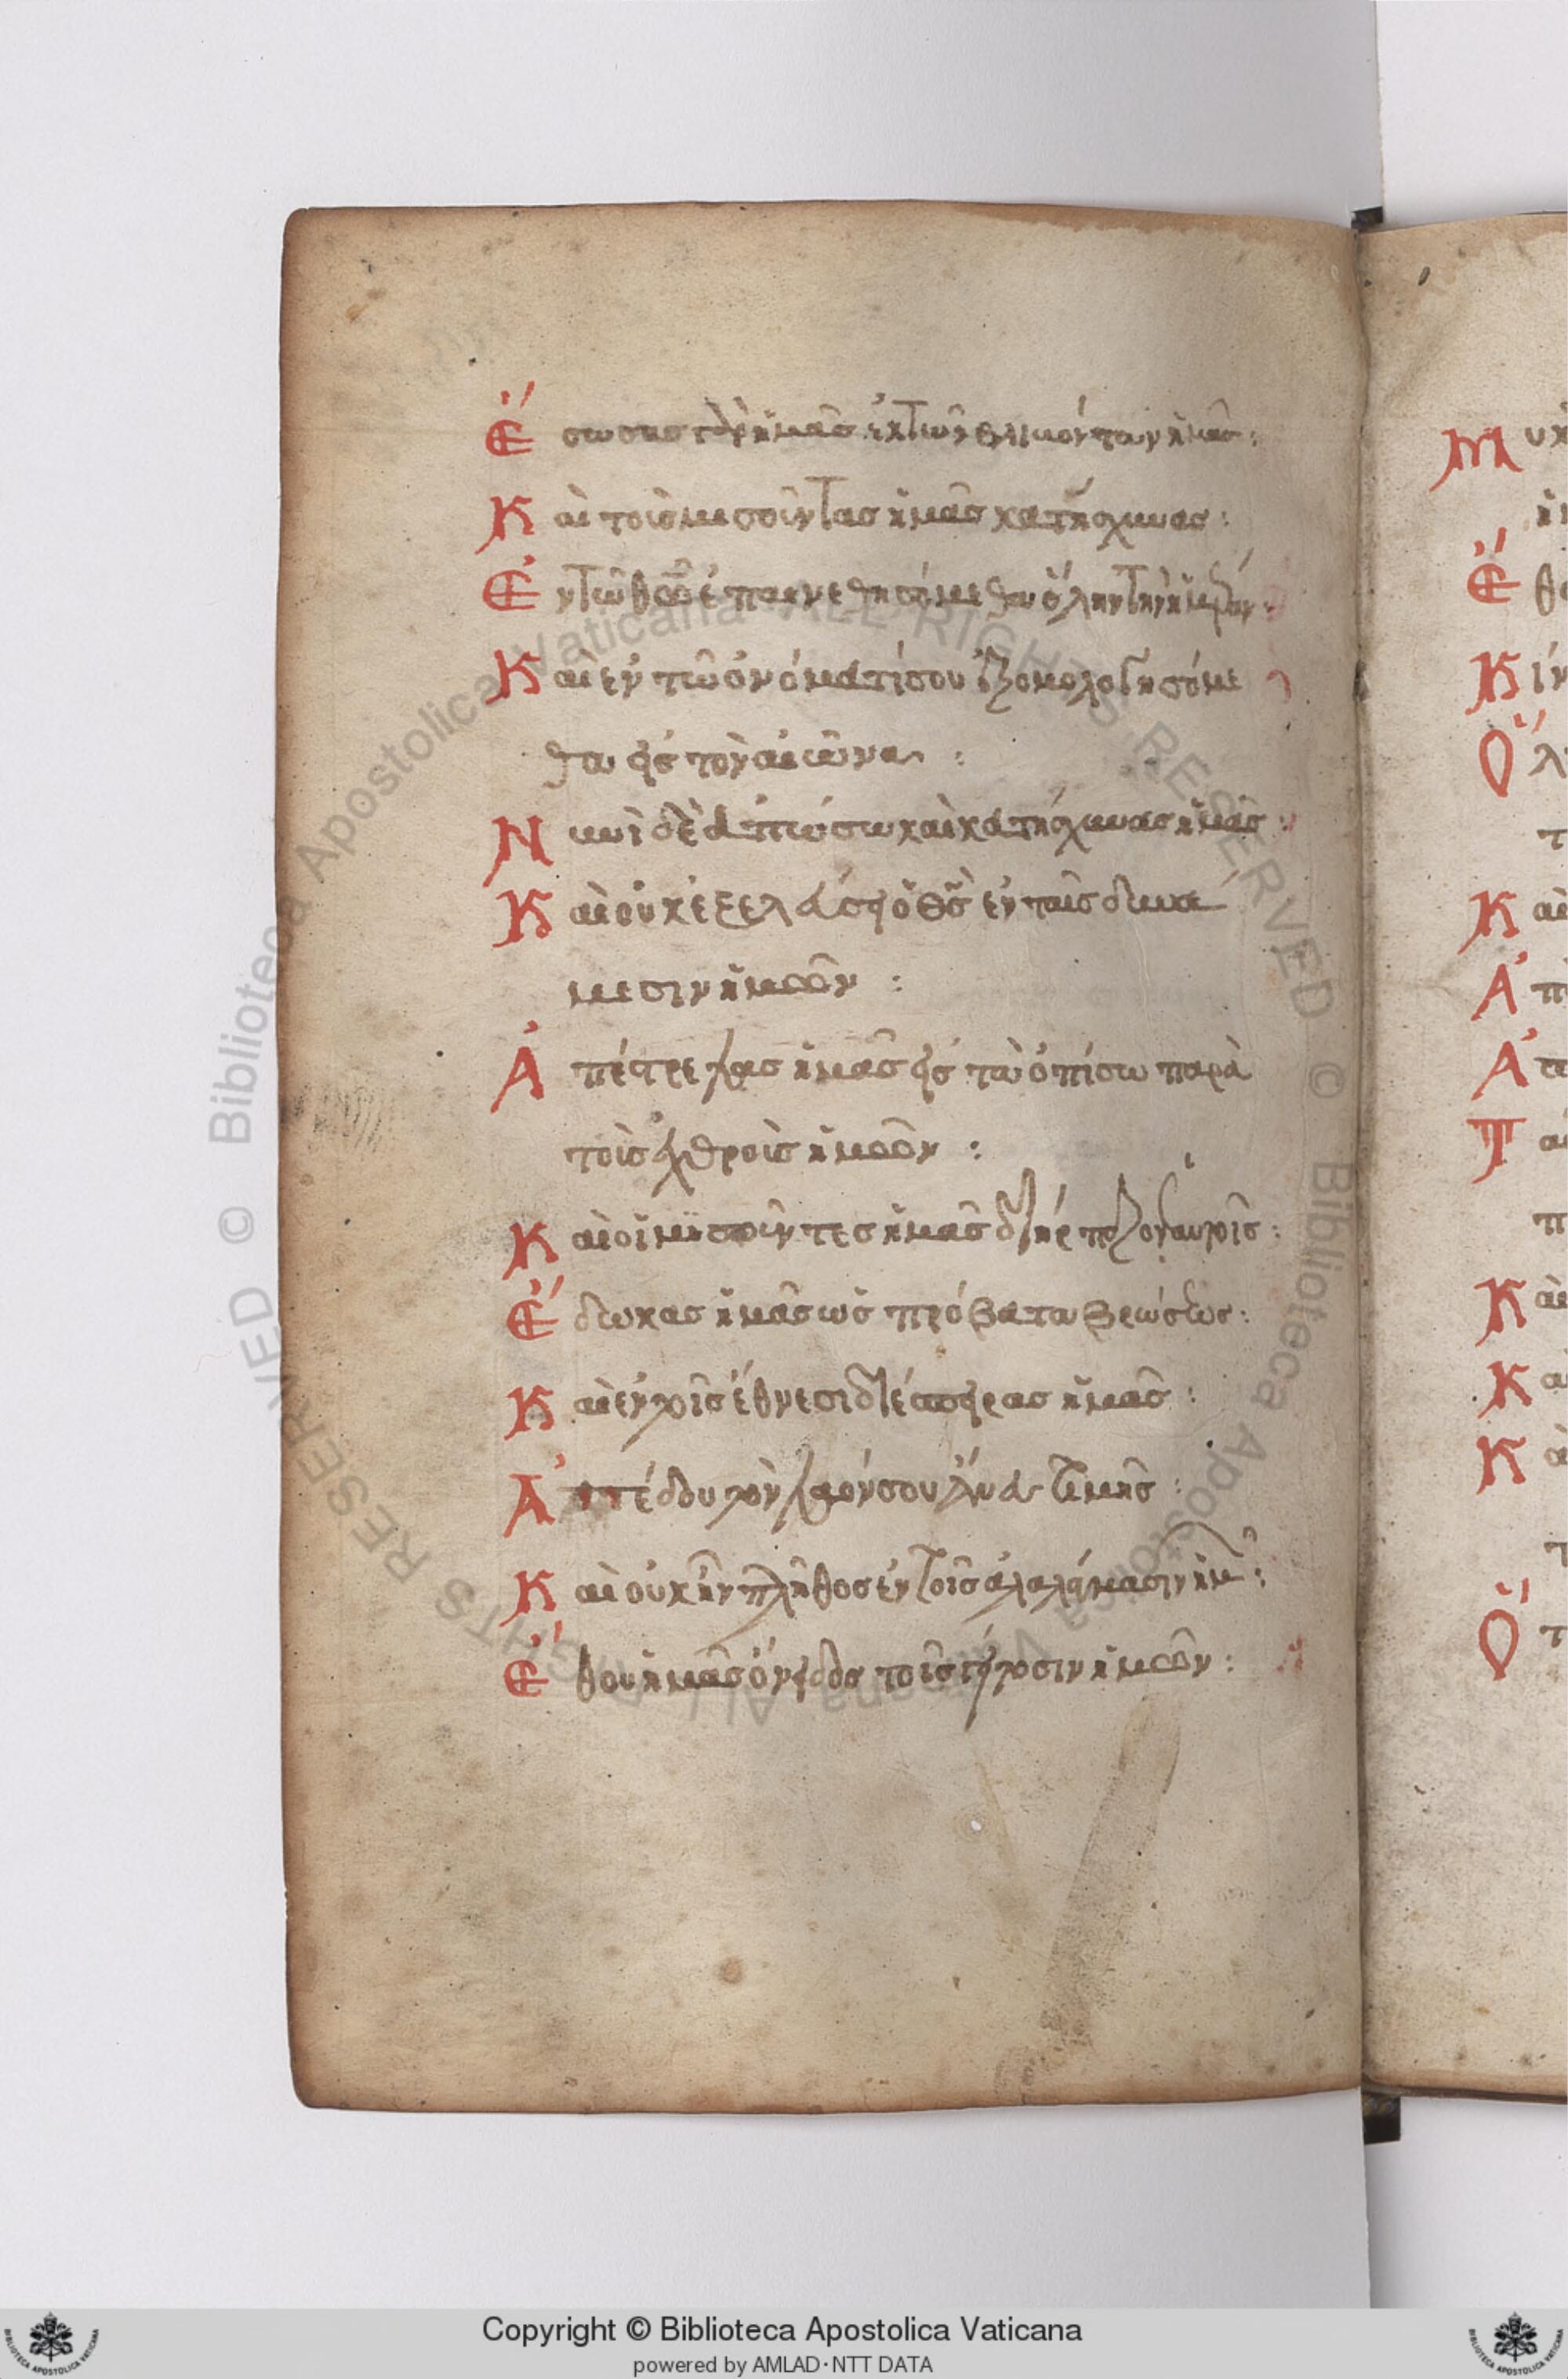 Ἔσωσας γὰρ ἡμᾶς ἐκ τῶν θλιβόντων ἡμᾶς:
Καὶ τοὺς μισοῦντας ἡμᾶς κατήσχυνας:
Ἐν τῶ θεῶ ἐπαινεθησόμεθα ὅλην τὴν ἡμέραν:
Καὶ ἐν τῶ ὀνόματί σου ἐξομολογησόμε
θα εἰς τὸν αἰῶνα:
Νυνὶ δὲ ἀπώσω καὶ κατήσχυνας ἡμᾶς:
Καὶ οὐκ ἐξελεύσει ὁ θς ἐν ταῖς δυνά
μεσιν ἡμῶν:
Ἀπέστρεψας ἡμᾶς εἰς τὰ ὀπίσω παρὰ
τοὺς ἐχθροὺς ἡμῶν:
Καὶ οἱ μισοῦντες ἡμᾶς διήρπαζον αὐτοῖς:
Ἔδωκας ἡμᾶς ὡς πρόβατα βρώσεως:
Καὶ ἐν τοῖς ἔθνεσι διέσπειρας ἡμᾶς:
Ἀπέδου τὸν λαόν σου ἄνευ τιμῆς:
Καὶ οὐκ ἦν πλῆθος ἐν τοῖς ἀλαλάγμασιν ἡμ:
Ἔθου ἡμᾶς ὄνειδος τοῖς γείτοσιν ἡμῶν:
Μ
Ἔθ
Κιν
Ὅλ
τ
Καὶ
Ἀπ
Π
π
Καὶ
Κα
τ
Ὅτ
© Biblioteca Apostolica Vaticana ALL RIGHTS RESERVED
Copyright © Biblioteca Apostolica Vaticana
powered by AMLAD·NTT DATA